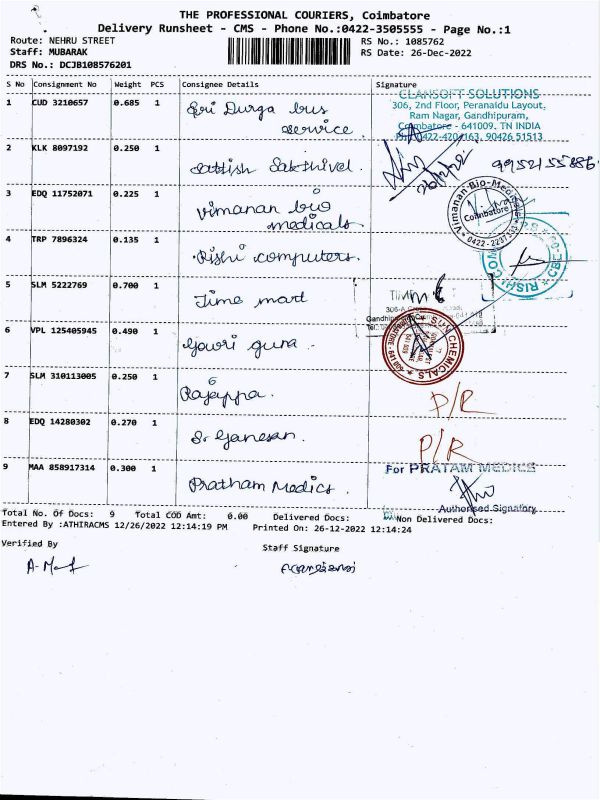 THE PROFESSIONAL COURIERS, Coimbatore
Delivery Runsheet - CMS - Phone No.:0422-3505555 - Page No.:1
Route: NEHRU STREET
RS No.: 1085762
Staff: MUBARAK
RS Date: 26-Dec-2022
DRS No.: DCJB108576201
S No Consignment No Weight PCS Consignee Details Signature
CLANSOFT SOLUTIONS
306, 2nd Floor, Peranaidu Layout,
Ram Nagar, Gandhipuram,
Coimbatore - 641009. TN INDIA
1 CUD 3210657 0.685 1 Sri Durga bus
service.
2 KLK 8097192 0.250 1 Sattish Sakthivel.
3 EDQ 11752071 0.225 1 Vimanan bio
medicals.
Vimanan Bio-Medicals
Coimbatore
4 TRP 7896324 0.135 1 Rishi computers.
5 SLM 5222769 0.700 1 Time mart
6 VPL 125405945 0.490 1 Gowri guna.
CHEMICALS
7 SLM 310113005 0.250 1 Rajappa.
P/R
8 EDQ 14280302 0.270 1 Sr Ganesan.
P/R
9 MAA 858917314 0.300 1 Pratham Medics.
For PRATAM MEDICS
Authorised Signatory
Total No. Of Docs: 9 Total COD Amt: 0.00 Delivered Docs: Non Delivered Docs:
Entered By :ATHIRACMS 12/26/2022 12:14:19 PM Printed On: 26-12-2022 12:14:24
Verified By
Staff Signature